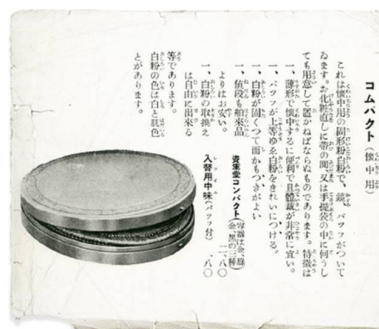 コムパクト（懐中用）
これは懐中用の固形粉白粉で、鏡、パツフがついて
ゐます。お化粧直しに帯の間、又は手提袋の中に何うし
ても用意して置かねばならぬものであります。特徴は
一、薄形で懐中するに便利で且體裁が非常に宜い。
一、パツフが上等ゆゑ白粉をきれいにつける。
一、白粉が固くつて附かもつきがよい
一、値段も舶來品
よりはお安い。
一、白粉の取換え
は自由に出來る
等であります。
白粉の色は白と肌色
とがあります。
資生堂コンパクト（容器は金、銀、黒の三種）一、八〇
入替用中味（パツフ付）、八〇